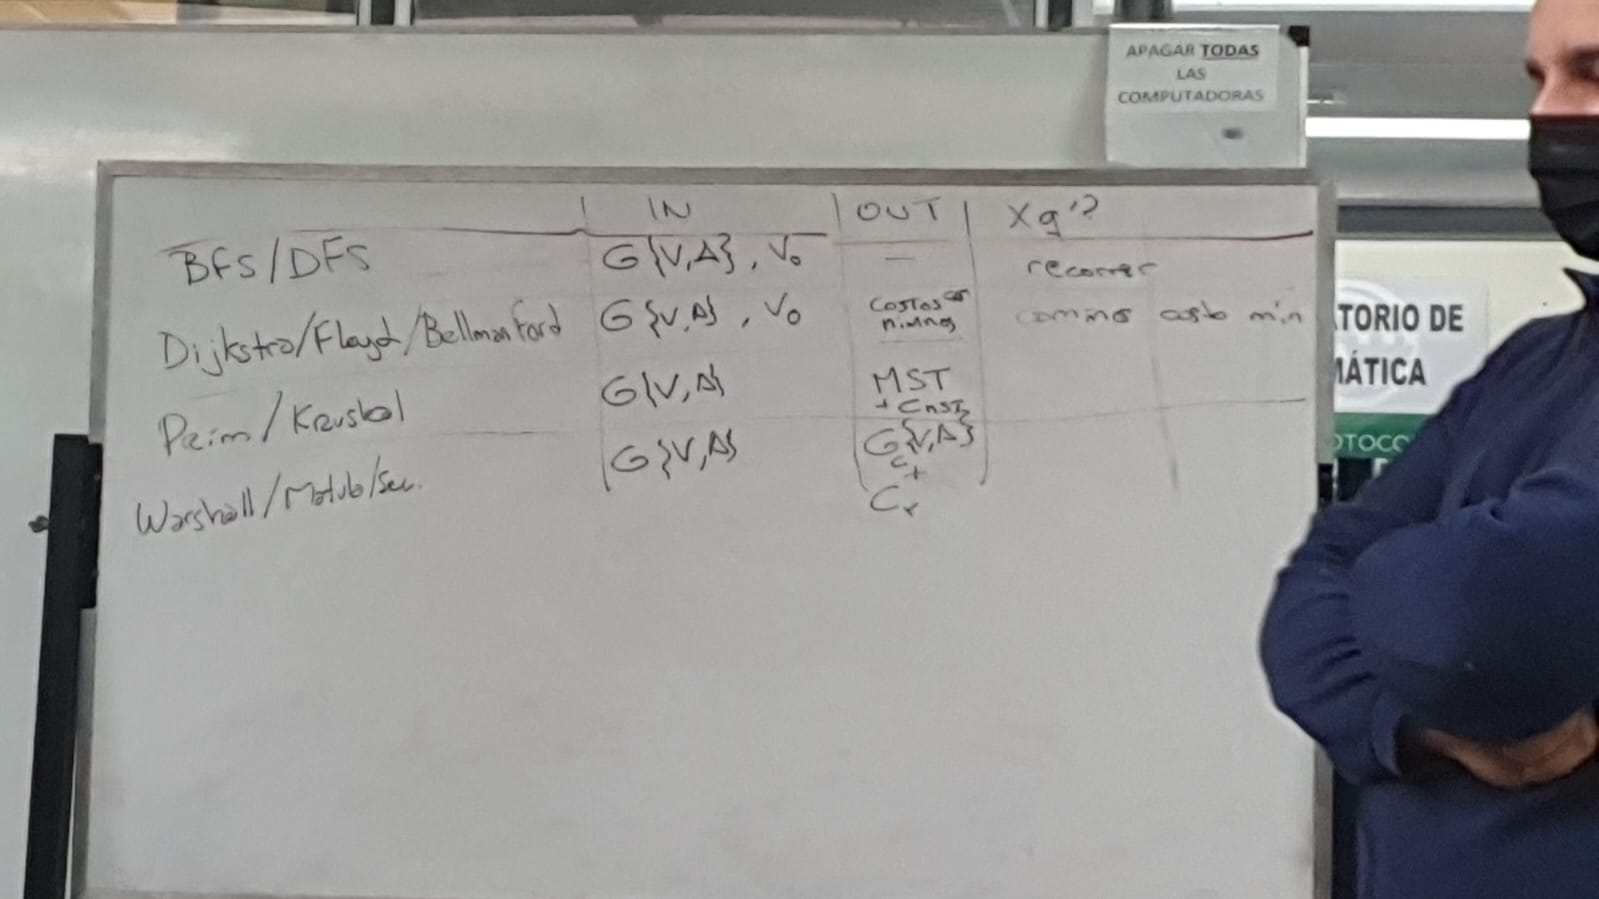 APAGAR TODAS
LAS
COMPUTADORAS
IN OUT Xq'?
BFS/DFS G{V,A}, V₀ — recorrer
Dijkstra/Floyd/Bellman Ford G{V,A}, V₀ costos caminos costo min
Prim/Kruskal G{V,A} MST
Warshall/Matub/Sec. G{V,A} G{V,A}
TORIO DE
MÁTICA
OTOCO